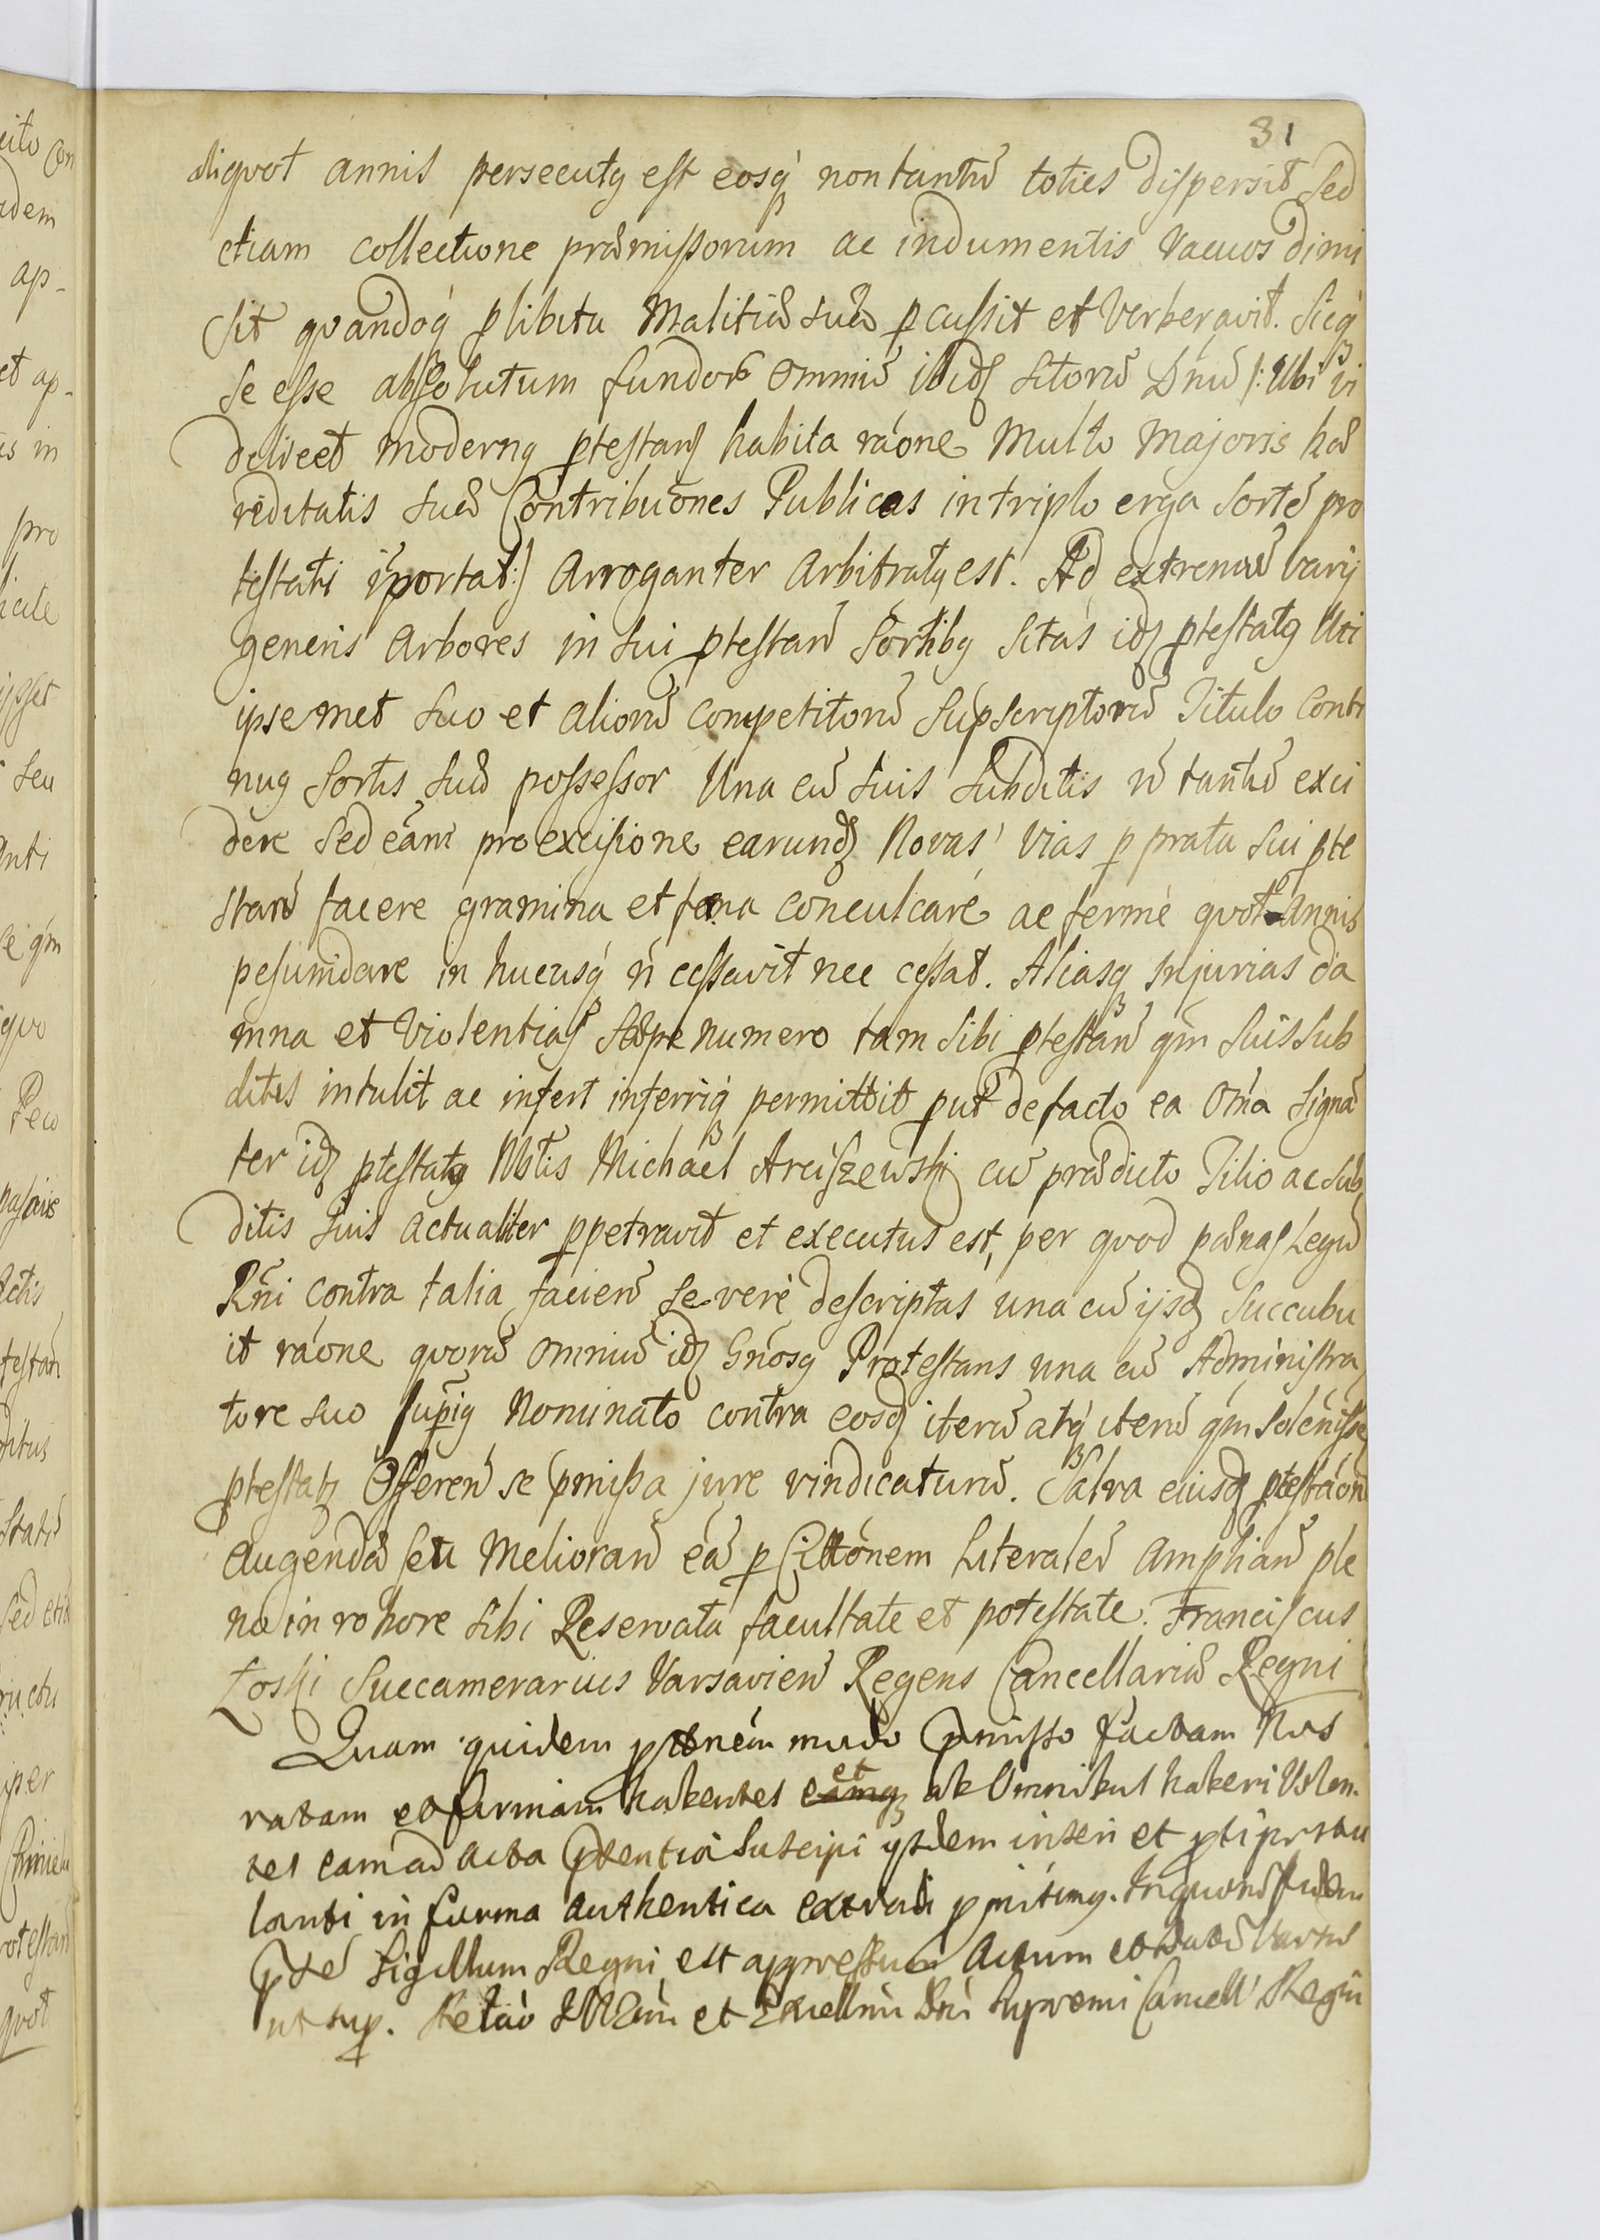 31
aliqvot annis persecutq est eosq́ non tantū toties dispersit sed
etiam collectione præmissorum ac indumentis vacuos dimi
sit qvandoq́ p libitu Malitiæ suæ pcussit et verberavit. Sicq́
se esse absolutum fundorū omniū ibidē sitorū Dnū /: Ubi vi
delicet modernq ptestans habita ráone Multo Majoris hæ
reditatis suæ Contribuōnes Publicas in triplo erga sortē pro
testati īportat :/ Arroganter Arbitratq est. Ad extremū varij
generis Arbores in sui ptestan̄ sortibq sitas idē ptestatq uti
ipsemet suo et aliorū competitorū supscriptorū Titulo Conti
nuq sortis suæ possessor Una cū suis subditis n̄ tantū exci
dere sed eām pro excisione earundē Novas vias p prata sui pte
stan̄ facere gramina et fæna conculcare ac fermè qvot Annis
pesumdare in hucusq́ n̄ cessavit nec cessat. Aliasq́ Injurias da
mna et Violentias sæpe numero tam sibi ptestan̄ qm̄ suis sub
ditis intulit ac infert inferriq́ permittit put de facto ea om̄a signā
ter idē ptestatq Mstis Michael Arciszewski cū prædicto Filio ac sub
ditis suis actualiter ppetravit et executus est, per qvod pænas Legū
Rn̄i contra talia facien̄ severè descriptas una cū ijsdē succubu
it ráone qvorū omniū idē Gn̄osq Protestans una cū Administra
tore suo supiq Nominato contra eosdē iterū atq́ iterū qm̄ solēnisse
ptestatq Offeren̄ se pmissa jure vindicaturū. Salva eiusdē ptestáōn
augendā seu melioran̄ eā p Cittōnem Literalēd Amplian̄ ple
na in robore sibi Reservata facultate et potestate. Franciscus
Łoski Succamerarius Varsavien̄ Regens Cancellariæ Regni
Quam quidem ptōnem modo pmisso factam Nos
ratam et firmam habentes et ab Omnibus haberi Volen
tes eam ad acta pentia suscipi ijsdem inseri et pti postu
lanti in forma authentica extradi pmitimq. In quorū fidem
pte Sigillum Regni est appressum Actum et Datū Varsæ
ut sup. Relaō Illm̄i et Excellm̄i Dn̄i supremi Cancell Regni